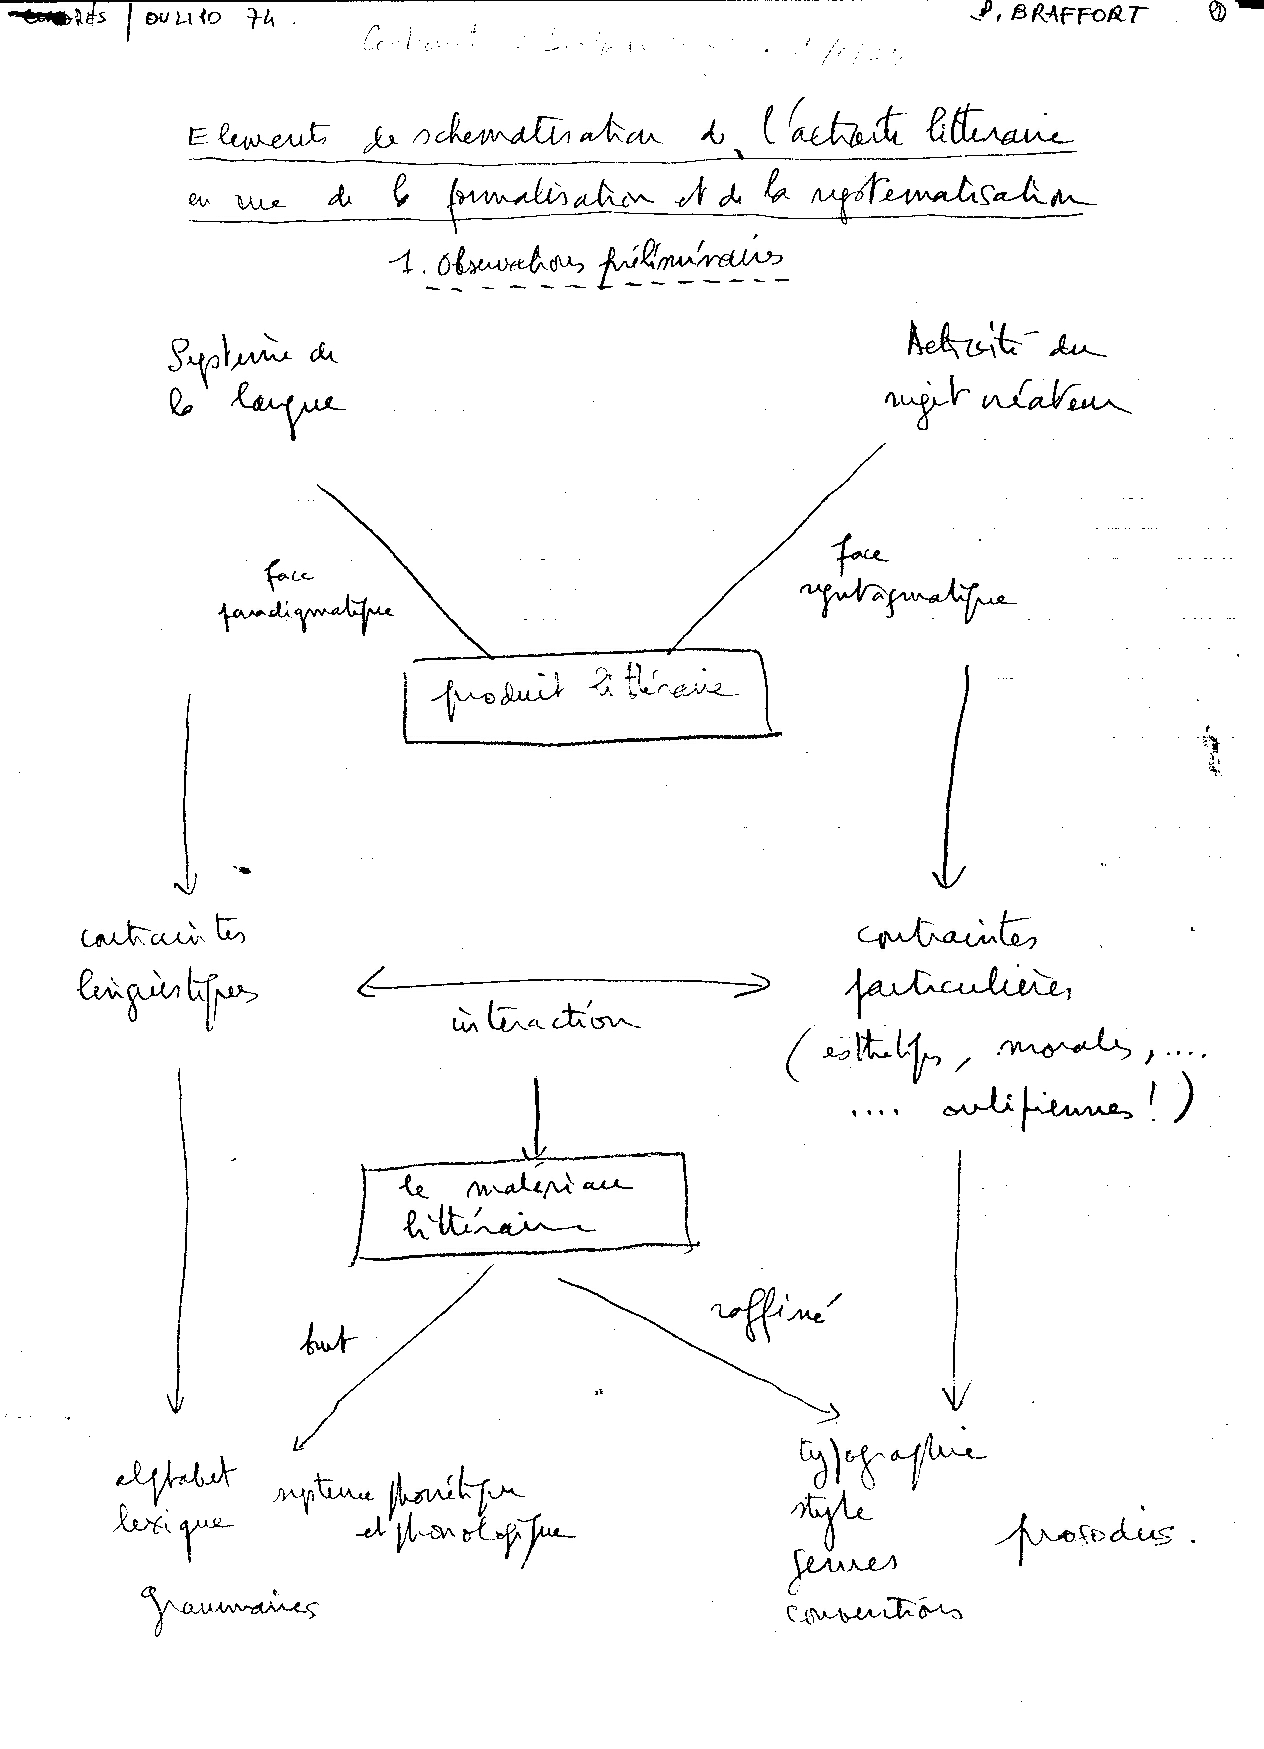 OULIPO 74. P. BRAFFORT
Elements de schematisation de l'activité litteraire
en vue de la formalisation et de la systematisation
1. Observations préliminaires
Système de
la langue
Activité du
sujet créateur
face
paradigmatique
face
syntagmatique
produit littéraire
contraintes
linguistiques
interaction
contraintes
particulières
(esthetiques, morales, ....
.... oulipiennes!)
le matériau
littéraire
brut
raffiné
alphabet
lexique
grammaires
systeme phonétique
et phonologique
typographie
style
genres
conventions
prosodies.